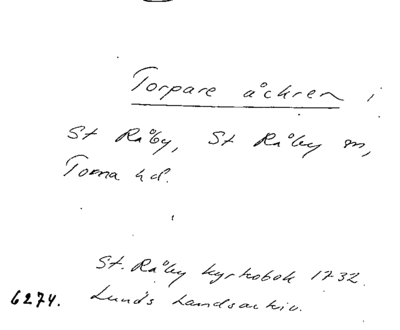 Torpare åckren i
St Råby, St Råby sn,
Torna hd.
St. Råby kyrkobok 1732.
6274. Lunds Landsarkiv.